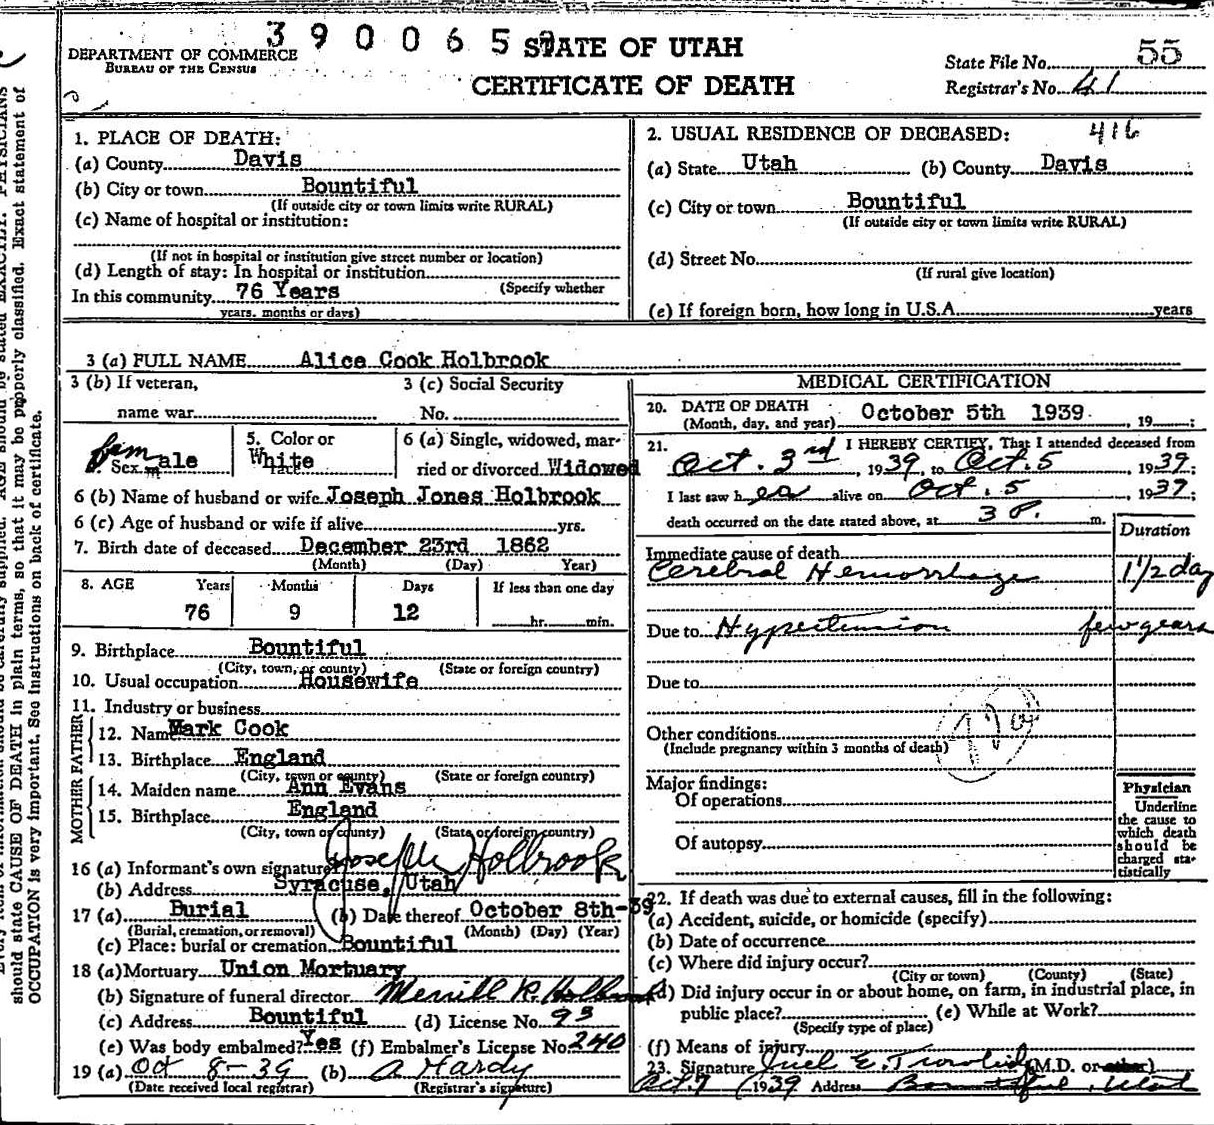 3 9 0 0 6 5
DEPARTMENT OF COMMERCE
BUREAU OF THE CENSUS
STATE OF UTAH
CERTIFICATE OF DEATH
State File No. 55
Registrar's No. 41
1. PLACE OF DEATH:
(a) County Davis
(b) City or town Bountiful
(If outside city or town limits write RURAL)
(c) Name of hospital or institution:
(If not in hospital or institution give street number or location)
(d) Length of stay: In hospital or institution
In this community 76 Years (Specify whether
years, months or days)
2. USUAL RESIDENCE OF DECEASED: 416
(a) State Utah (b) County Davis
(c) City or town Bountiful
(If outside city or town limits write RURAL)
(d) Street No.
(If rural give location)
(e) If foreign born, how long in U.S.A. years
3 (a) FULL NAME Alice Cook Holbrook
3 (b) If veteran, 3 (c) Social Security
name war No.
4. Sex female
5. Color or race White
6 (a) Single, widowed, mar-
ried or divorced Widowed
6 (b) Name of husband or wife Joseph Jones Holbrook
6 (c) Age of husband or wife if alive yrs.
7. Birth date of deceased December 23rd 1862
(Month) (Day) Year)
8. AGE Years Months Days If less than one day
76 9 12 hr. min.
9. Birthplace Bountiful
(City, town, or county) (State or foreign country)
10. Usual occupation Housewife
11. Industry or business
FATHER
12. Name Mark Cook
13. Birthplace England
(City, town or county) (State or foreign country)
MOTHER
14. Maiden name Ann Evans
15. Birthplace England
(City, town or county) (State or foreign country)
16 (a) Informant's own signature Joseph Holbrook
(b) Address Syracuse, Utah
17 (a) Burial (b) Date thereof October 8th-39
(Burial, cremation, or removal) (Month) (Day) (Year)
(c) Place: burial or cremation Bountiful
18 (a) Mortuary Union Mortuary
(b) Signature of funeral director Merrill R. Holbrook
(c) Address Bountiful (d) License No. 93
(e) Was body embalmed? Yes (f) Embalmer's License No. 240
19 (a) Oct 8-39 (b) A Hardy
(Date received local registrar) (Registrar's signature)
MEDICAL CERTIFICATION
20. DATE OF DEATH October 5th 1939 , 19 ;
(Month, day, and year)
21. I HEREBY CERTIFY, That I attended deceased from
Oct. 3rd , 1939, to Oct. 5 , 1939;
I last saw her alive on Oct. 5 , 1939;
death occurred on the date stated above, at 3 P. m.
Duration
Immediate cause of death
Cerebral Hemorrhage 1 1/2 day
Due to Hypertension few years
Due to
Other conditions
(Include pregnancy within 3 months of death)
Major findings:
Of operations
Of autopsy
Physician
Underline
the cause to
which death
should be
charged sta-
tistically
22. If death was due to external causes, fill in the following:
(a) Accident, suicide, or homicide (specify)
(b) Date of occurrence
(c) Where did injury occur?
(City or town) (County) (State)
(d) Did injury occur in or about home, on farm, in industrial place, in
public place? (e) While at Work?
(Specify type of place)
(f) Means of injury
23. Signature E. (M.D. or other)
Oct 7 1939 Address Bountiful, Utah
should state CAUSE OF DEATH in plain terms, so that it may be properly classified. Exact statement of
OCCUPATION is very important. See instructions on back of certificate.